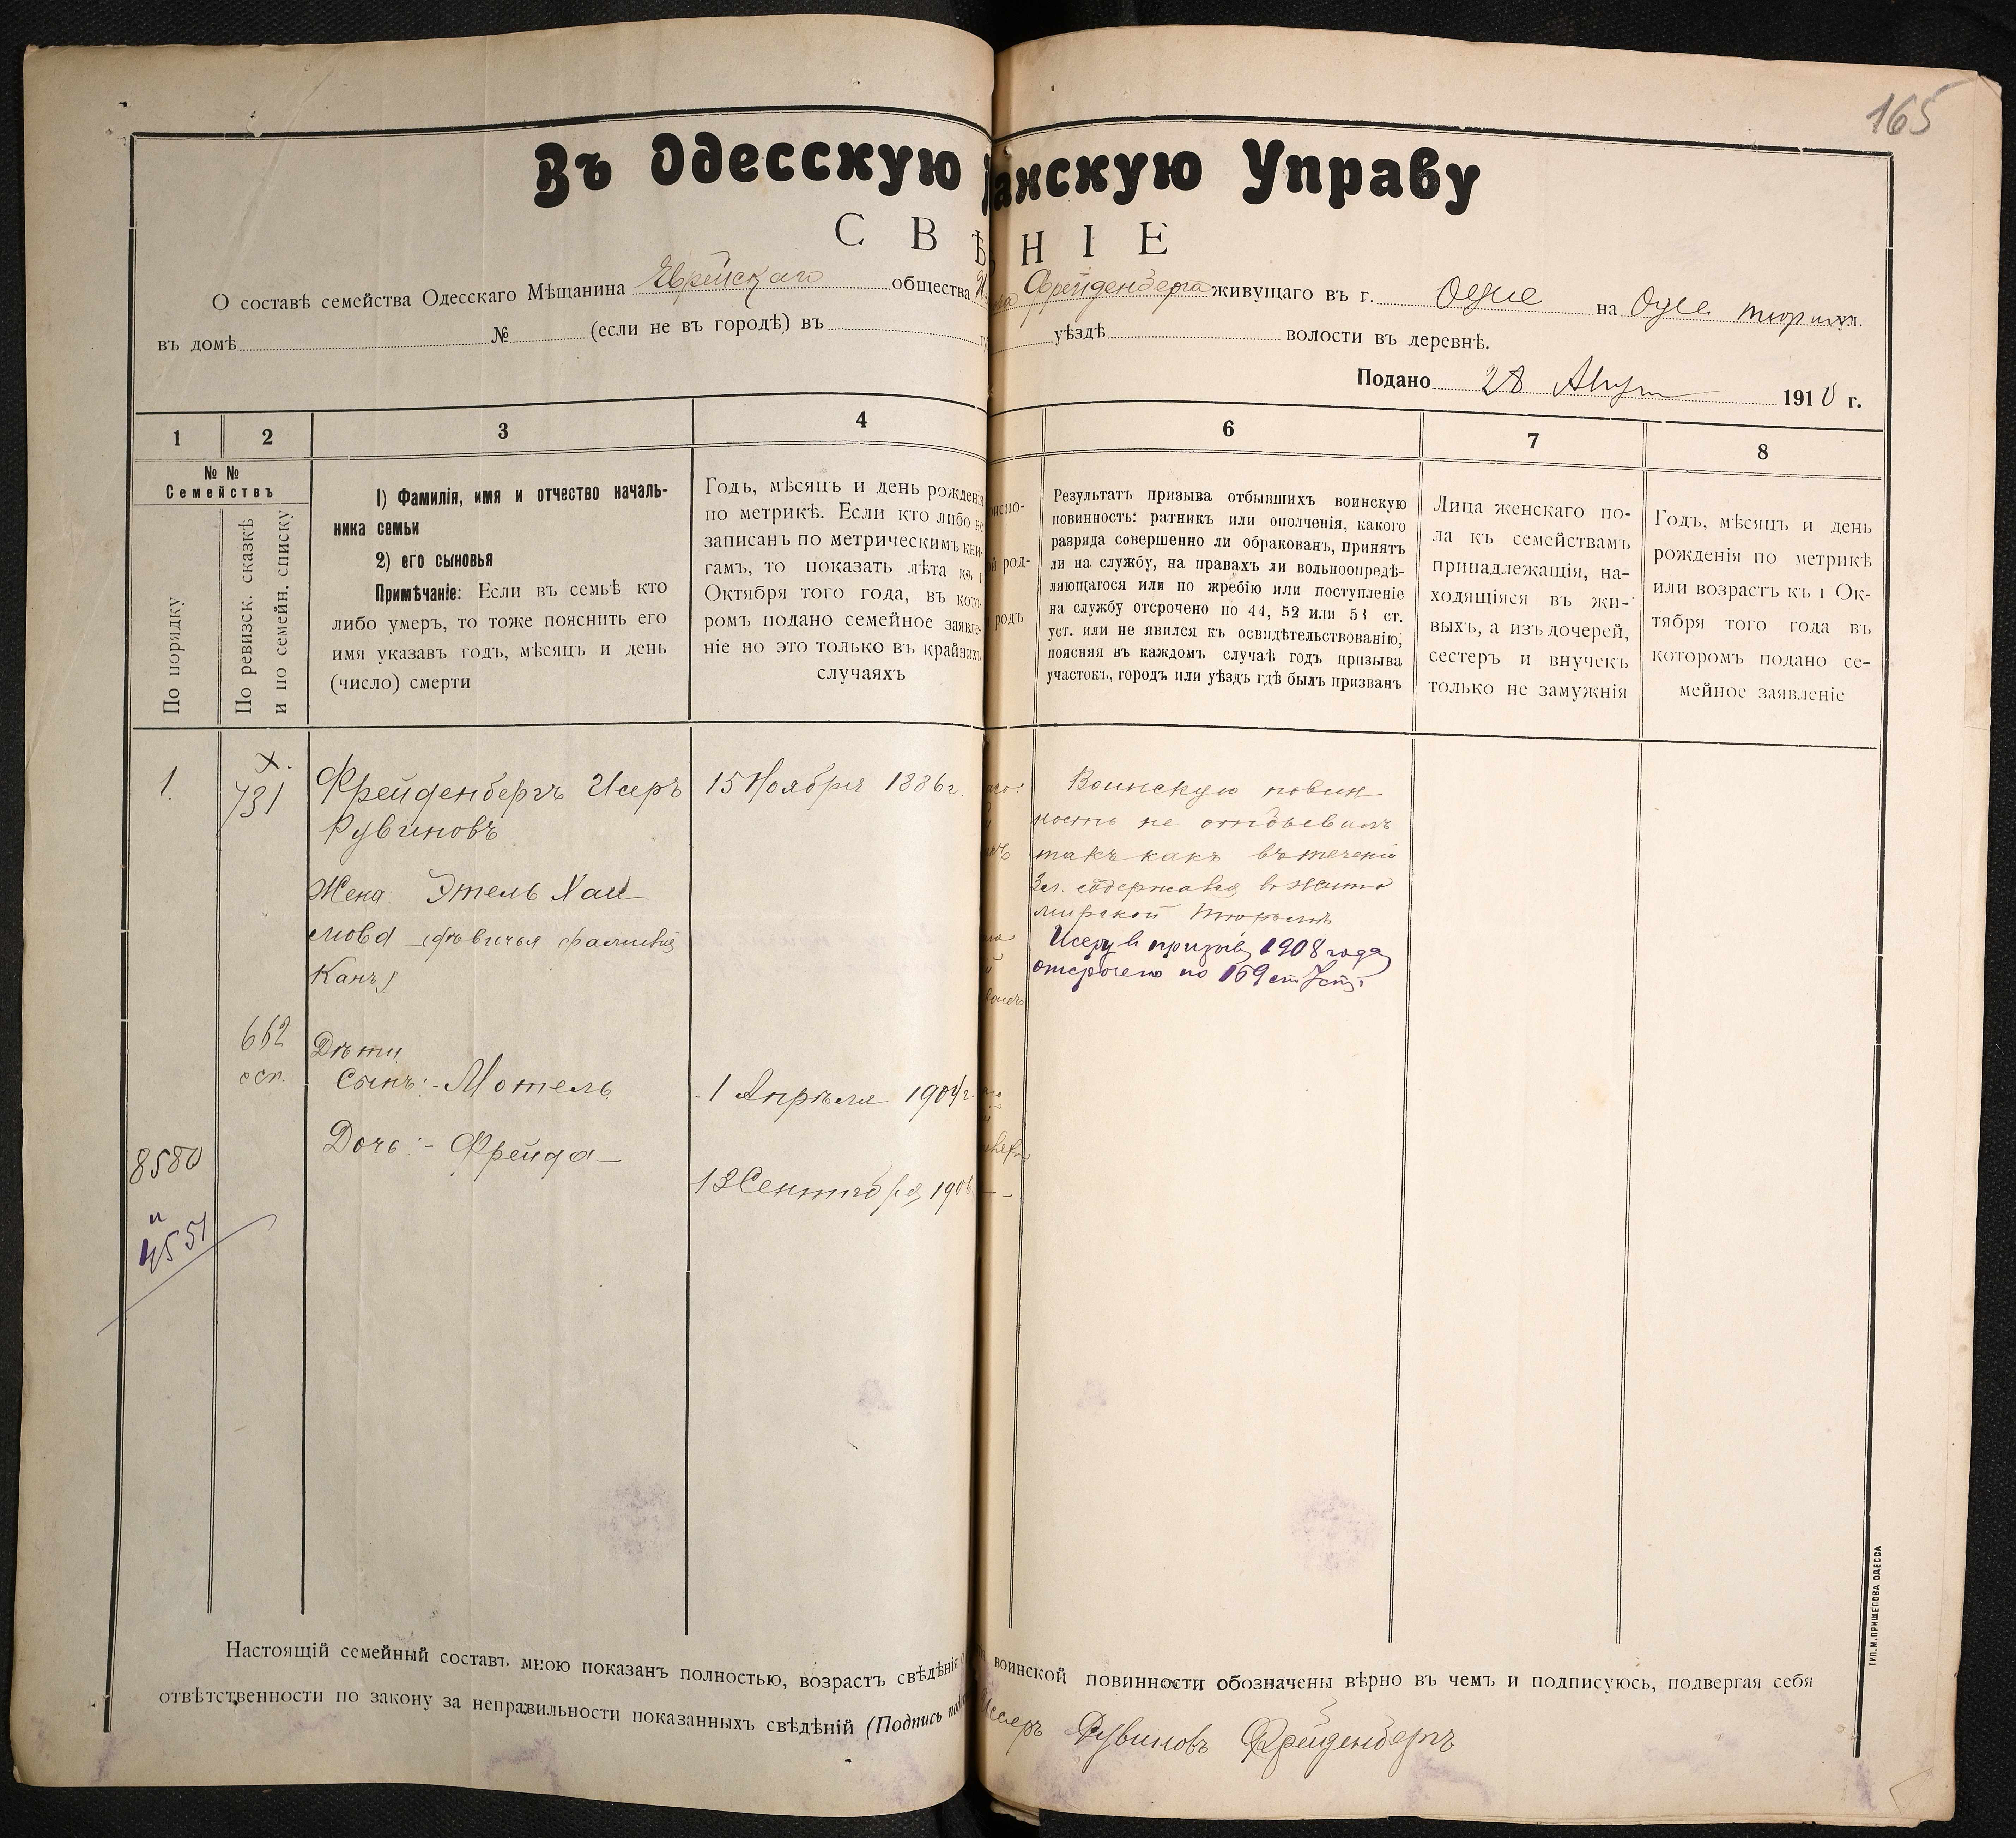 165
Въ Одесскую анскую Управу
СВѢНІЕ
О составѣ семейства Одесскаго Мѣщанина Еврейскаго общества Фрейденберга живущаго въ г. на
въ домѣ № (если не въ городѣ) въ уѣздѣ волости въ деревнѣ.
Подано 28 1910 г.
1 2 3 4 6 7 8
№ №
Семействъ
По порядку
По ревизск. сказкѣ
и по семейн. списку
1) Фамилія, имя и отчество началь-
ника семьи
2) его сыновья
Примѣчаніе: Если въ семьѣ кто
либо умеръ, то тоже пояснить его
имя указавъ годъ, мѣсяцъ и день
(число) смерти
Годъ, мѣсяцъ и день рожденія
по метрикѣ. Если кто либо не
записанъ по метрическимъ кни-
гамъ, то показать лѣта къ 1
Октября того года, въ кото-
ромъ подано семейное заявле-
ніе но это только въ крайнихъ
случаяхъ
испо-
й род-
родъ
Результатъ призыва отбывшихъ воинскую
повинность: ратникъ или ополченія, какого
разряда совершенно ли обракованъ, принятъ
ли на службу, на правахъ ли вольноопредѣ-
ляющагося или по жребію или поступленіе
на службу отсрочено по 44, 52 или 53 ст.
уст. или не явился къ освидѣтельствованію,
поясняя въ каждомъ случаѣ годъ призыва
участокъ, городъ или уѣздъ гдѣ былъ призванъ
Лица женскаго по-
ла къ семействамъ
принадлежащія, на-
ходящіяся въ жи-
выхъ, а изъ дочерей,
сестеръ и внучекъ
только не замужнія
Годъ, мѣсяцъ и день
рожденія по метрикѣ
или возрастъ къ 1 Ок-
тября того года въ
которомъ подано се-
мейное заявленіе
1.
х.
731
Фрейденбергъ Исеръ
Рувиновъ
15 Ноября 1886г.
Жена: Этель Хаи
мова (дѣвичья фамилія
Канъ)
662
Дѣти
Сынъ:- Мотель
1 Апрѣля 1904г.
Дочь:- Фрейда
13 Сентября 1906
8580
и
4551
Воинскую повин
ность не отбывалъ
такъ какъ въ теченіи
3 г. содержался въ Жито
мирской тюрьмѣ
Исеру въ призывъ 1908 года
отсрочено по 169 ст Уст.
Настоящій семейный составъ мною показанъ полностью, возрастъ свѣдѣнія воинской повинности обозначены вѣрно въ чемъ и подписуюсь, подвергая себя
отвѣтственности по закону за неправильности показанныхъ свѣдѣній (Подпись Иссеръ Рувиновъ Фрейденбергъ
ТИП. М. ПРИЩЕПОВА ОДЕССА